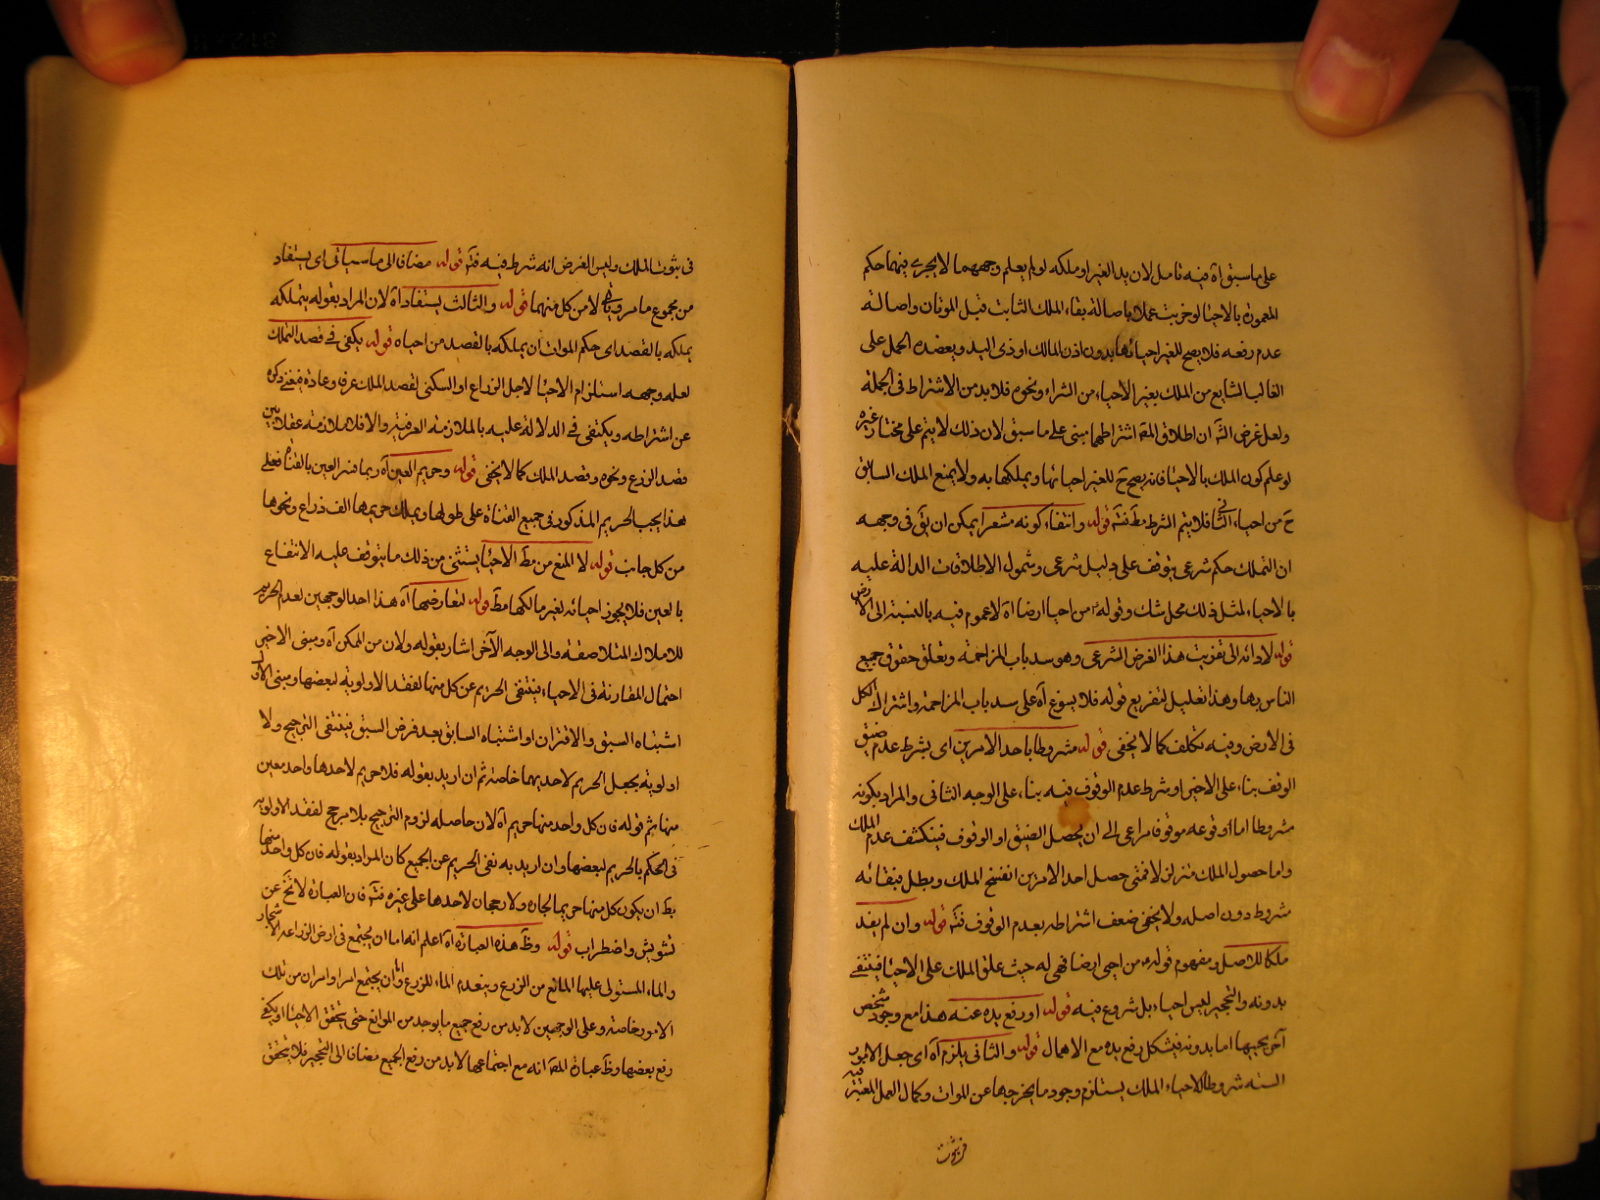 على ما سبق آه فيه تأمل لان يد الغير او ملكه لو لم يعلم وجههما لا يجرى فيهما حكم
المعمورة بالاحياء لو خربت عملا باصالة بقاء الملك الثابت قبل الموتان واصالة
عدم رفعه فلا يصح للغير احيائها بدون اذن المالك او ذى اليد ويعضده الحمل على
الغالب الشايع من الملك بغير الاحياء من الشراء ونحوه فلا بد من الاشتراط فى الجملة
ولعل غرض الش ان اطلاق المص اشتراطهما مبنى على ما سبق لان ذلك لا يتم على مختار غيره
لو علم كون الملك بالاحياء فانه يصح ح للغير احيائها ويملكها به ولا يمنع الملك السابق
ح من احياء الثانى فلا يتم الشرط مط فتد قوله وانتفاء كونه مشعرا يمكن ان يق فى وجهه
ان التملك حكم شرعى يتوقف على دليل شرعى وشمول الاطلاقات الدالة عليه
بالاحياء لمثل ذلك محل شك وقوله من احيا ارضا آه لا عموم فيه بالنسبة الى الارض
قوله لادائه الى تفويت هذا الغرض الشرعى وهو سد باب المزاحمة وتعلق حقوق جميع
الناس بها وهذا تعليل لتفريع قوله فلا يسوغ آه على سد باب المزاحمة واشتراك الكل
فى الارض وفيه تكلف كما لا يخفى قوله مشروطا باحد الامرين اى بشرط عدم ضيق
الوقف بناء على الاخير او شرط عدم الوقوف فيه بناء على الوجه الثانى والمراد بكونه
مشروطا اما وقوعه موقوفا مراعى الى ان يحصل الضيق او الوقوف فينكشف عدم الملك
واما حصول الملك متزلزلا فمتى حصل احد الامرين انفسخ الملك وبطل فبقائه
مشروط دون اصله ولا يخفى ضعف اشتراطه بعدم الوقوف فتد قوله وان لم يفد
ملكا للاصل ومفهوم قوله من احيى ارضا فهى له حيث علق الملك على الاحياء فينتفى
بدونه والتحجير ليس احياء بل شروع فيه قوله او رفع يده عنه هذا مع وجود شخص
آخر يحييها اما بدونه فيشكل رفع يده مع الاهمال قوله والثانى يلزم آه اى جعل الامور
الستة شروطا لاحياء الملك يستلزم وجود ما يخرجها عن الموات وكمال العمل المعتبر فيه
فى ثبوت
فى ثبوت الملك وليس الغرض انه شرط فيه فتد قوله مضافا الى ما سياتى اى يستفاد
من مجموع ما مر وياتى لا من كل منهما قوله والثالث يستفاد آه لان المراد بقوله يتملكه
يملكه بالقصد اى حكم الموات ان يملكه بالقصد من احياه قوله يكفى فى قصد التملك
لعله وجهه استلزام الاحياء لاجل الزراع او السكنى لقصد الملك عرفا وعادة فيغنى ذكره
عن اشتراطه ويكتفى فى الدلالة عليه بالملازمة العرفية والا فلا ملازمة عقلا بين
قصد الزرع ونحوه وقصد الملك كما لا يخفى قوله وحريم العين آه ربما فسر العين بالقناة فعلى
هذا يجب الحريم المذكور فى جميع القناة على طولها ويملك حريمها الف ذراع ونحوها
من كل جانب قوله لا المنع من مط الاحياء يستثنى من ذلك ما يتوقف عليه الانتفاع
بالعين فلا يجوز احيائه لغير مالكها مط قوله لتعارضها آه هذا احد الوجهين لعدم الحريم
للاملاك المتلاصقة والى الوجه الآخر اشار بقوله ولان من الممكن آه ومبنى الاخير
احتمال المقارنة فى الاحياء فينتفى الحريم عن كل منها لفقد الاولوية لبعضها ومبنى الاول
اشتباه السبق والاقتران او اشتباه السابق بعد فرض السبق فينتفى الترجيح ولا
اولوية بجعل الحريم لاحديهما خاصة ثم ان اريد بقوله فلا حريم لاحدها واحد معين
منها ثم قوله فان كل واحد منها حريم آه لان حاصله لزوم الترجيح بلا مرجح لفقد الاولوية
فى الحكم بالحريم لبعضها وان اريد به نفى الحريم عن الجميع كان المراد بقوله فان كل واحد منها
يظ ان يكون كل منها حريما لجاره ولا رجحان لاحدها على غيره فتد فان العبارة لا تخ عن
تشويش واضطراب قوله وظ هذه العبارة آه اعلم انه اما ان يجتمع فى ارض الزراعة الاشجار
والماء المستولى عليها المانع من الزرع وينعدم الماء للزرع واما ان يجتمع امر او امران من تلك
الامور خاصة وعلى الوجهين لا بد من رفع جميع ما يوجد من الموانع حتى يتحقق الاحياء او يكفى
رفع بعضها وظ عبارة المص انه مع اجتماعها لا بد من رفع الجميع مضافا الى التحجير فلا يتحقق